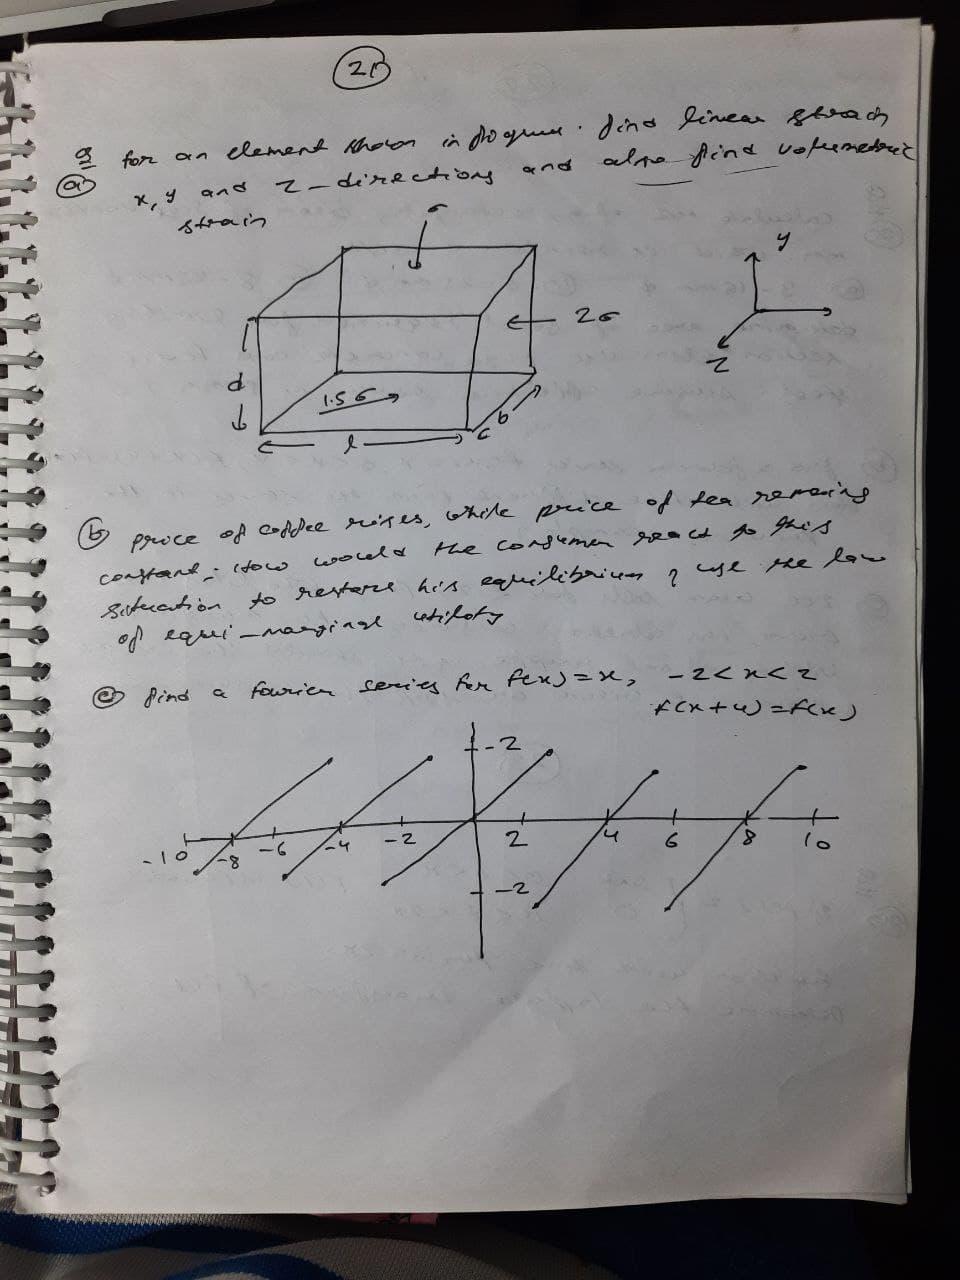 21
Q for an element shown in diagram. find linear strain
(a) x, y and z-directions and also find volumetric
strain
σ
y
2σ
z
d
1.5 σ
b
l
c
(b) price of coffee rises, while price of tea remaining
constant. How would the consumer react to this
situation to restore his equilibrium? use the law
of equi-marginal utility
(c) find a fourier series for f(x) = x, -2 < x < 2
f(x+4) = f(x)
-2
-10 -8 -6 -4 -2 2 4 6 8 10
-2